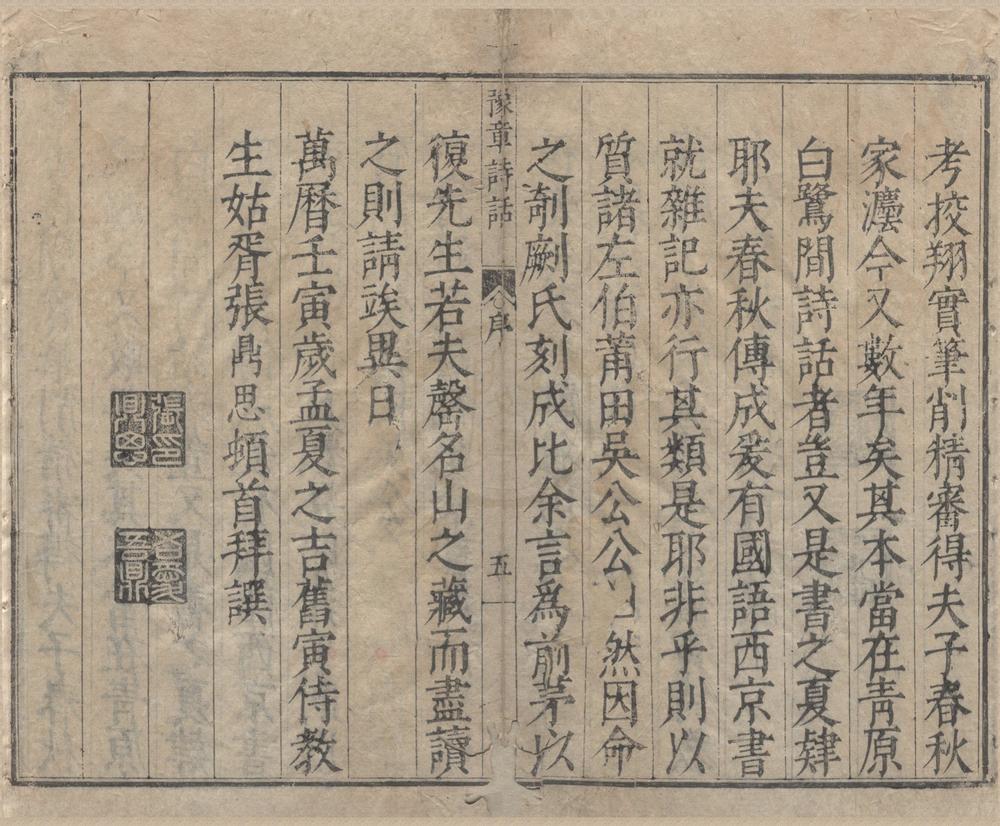 考挍翔實筆削精審得夫子春秋
家灋今又數年矣其本當在青原
白鷺間詩話者豈又是書之夏肄
耶夫春秋傳成爰有國語西京書
就雜記亦行其類是耶非乎則以
質諸左伯莆田吳公公然因命
之剞劂氏刻成比余言爲前茅以
豫章詩話 序 五
復先生若夫罄名山之藏而盡讀
之則請竢異日
萬曆壬寅歲孟夏之吉舊寅侍教
生姑胥張鼎思頓首拜譔
張印
鼎思
吾愛
吾鼎